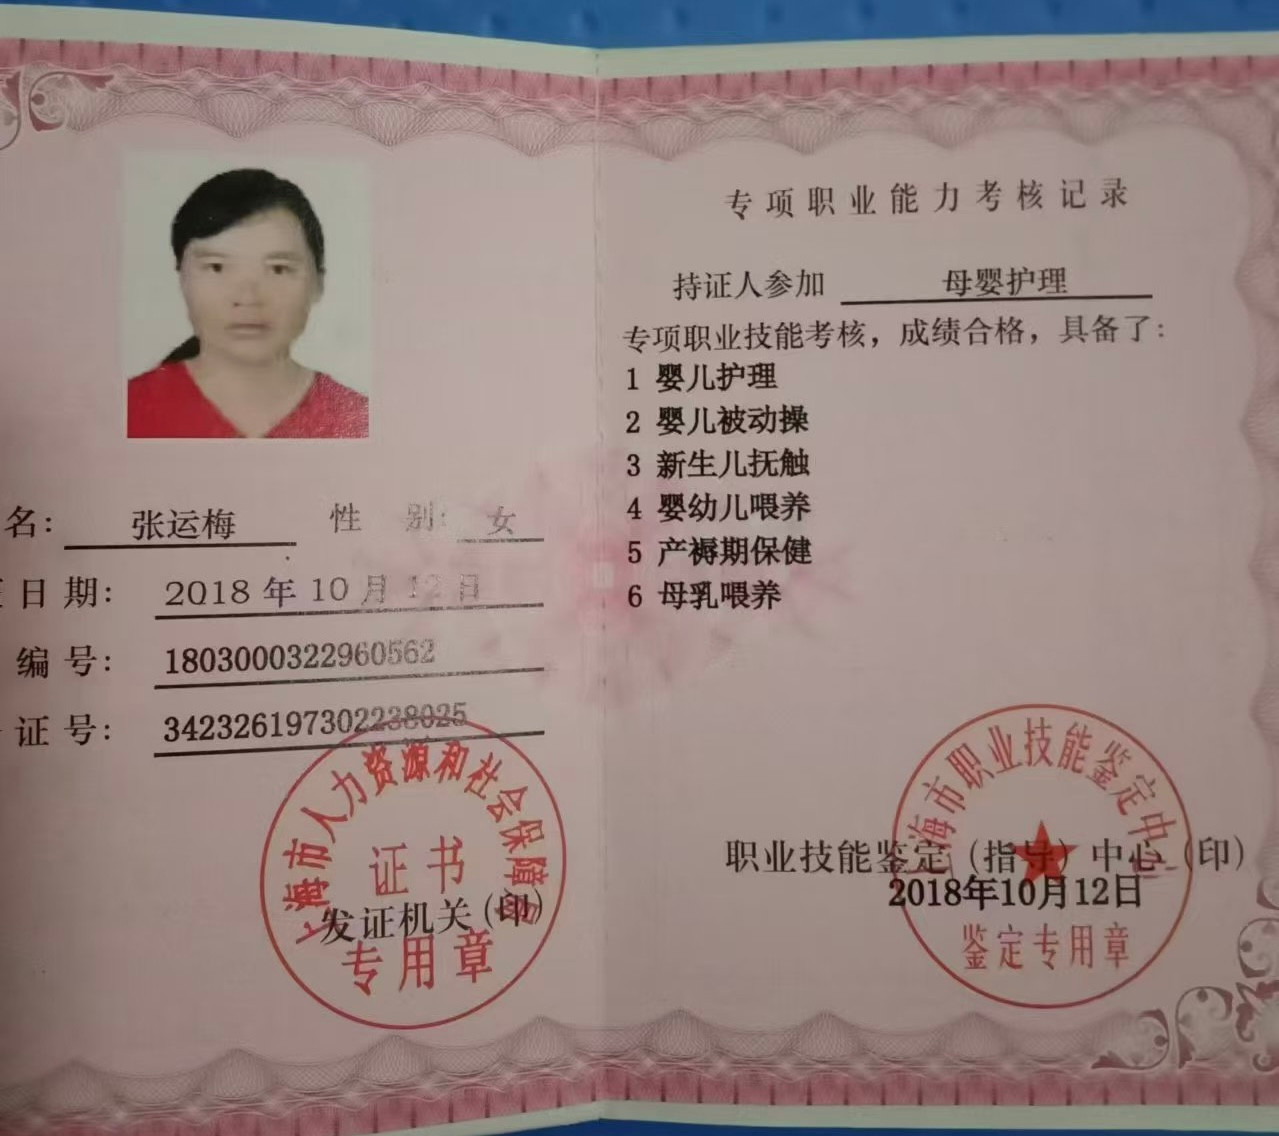 名： 张运梅 性 别： 女
日 期： 2018 年 10 月 12 日
编 号： 1803000322960562
证 号： 342326197302238025
上海市人力资源和社会保障局
证书
发证机关（印）
专用章
专项职业能力考核记录
持证人参加 母婴护理
专项职业技能考核，成绩合格，具备了：
1 婴儿护理
2 婴儿被动操
3 新生儿抚触
4 婴幼儿喂养
5 产褥期保健
6 母乳喂养
上海市职业技能鉴定中心
职业技能鉴定（指导）中心（印）
2018年10月12日
鉴定专用章